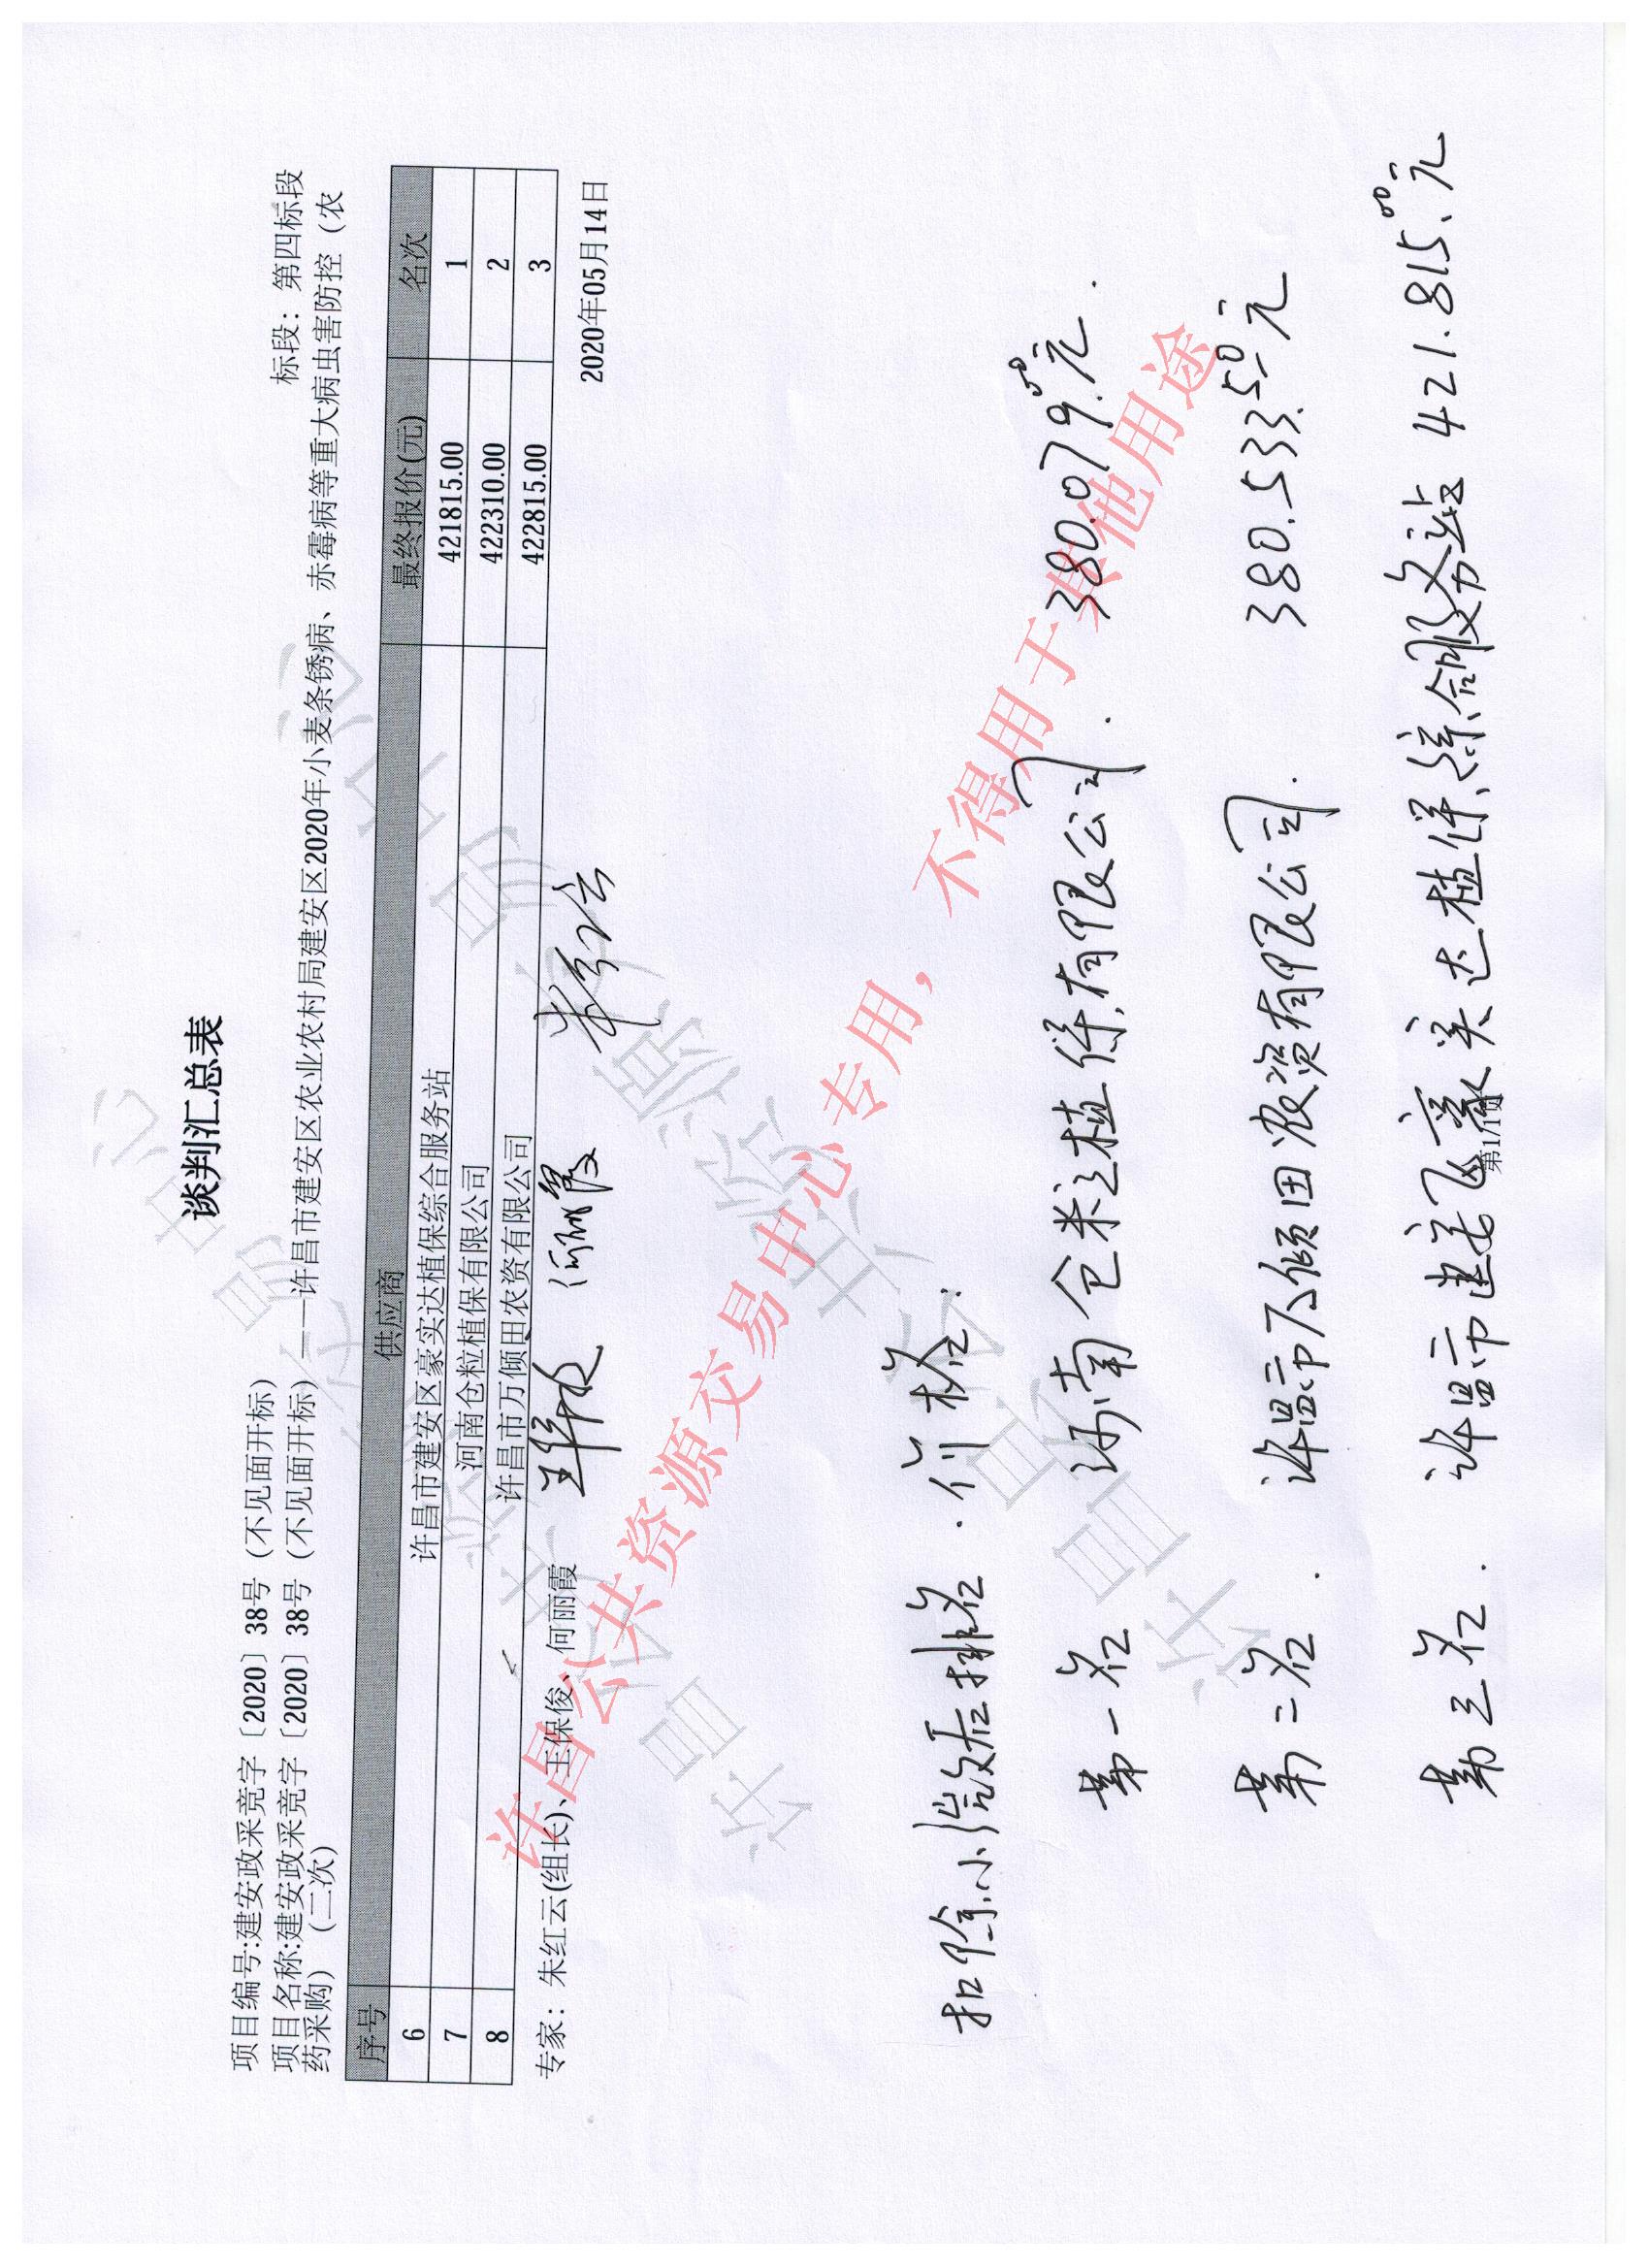 谈判汇总表
项目编号:建安政采竞字〔2020〕38号（不见面开标）
标段：第四标段
项目名称:建安政采竞字〔2020〕38号（不见面开标）——许昌市建安区农业农村局建安区2020年小麦条锈病、赤霉病等重大病虫害防控（农
药采购）（二次）
序号 供应商 最终报价(元) 名次
6 许昌市建安区豪实达植保综合服务站 421815.00 1
7 河南仓粒植保有限公司 422310.00 2
8 许昌市万倾田农资有限公司 422815.00 3
专家：朱红云(组长)、王保俊、何丽霞
2020年05月14日
扣除小微后排名.价格:
第一名 河南仓粒植保有限公司. 380.079.00元.
第二名. 许昌市万倾田农资有限公司. 380.533.50元
第三名. 许昌市建安区豪实达植保综合服务站 421.815.00元
第1/1页
许昌公共资源交易中心专用，不得用于其他用途
许昌公共资源交易中心
许昌公共资源交易中心